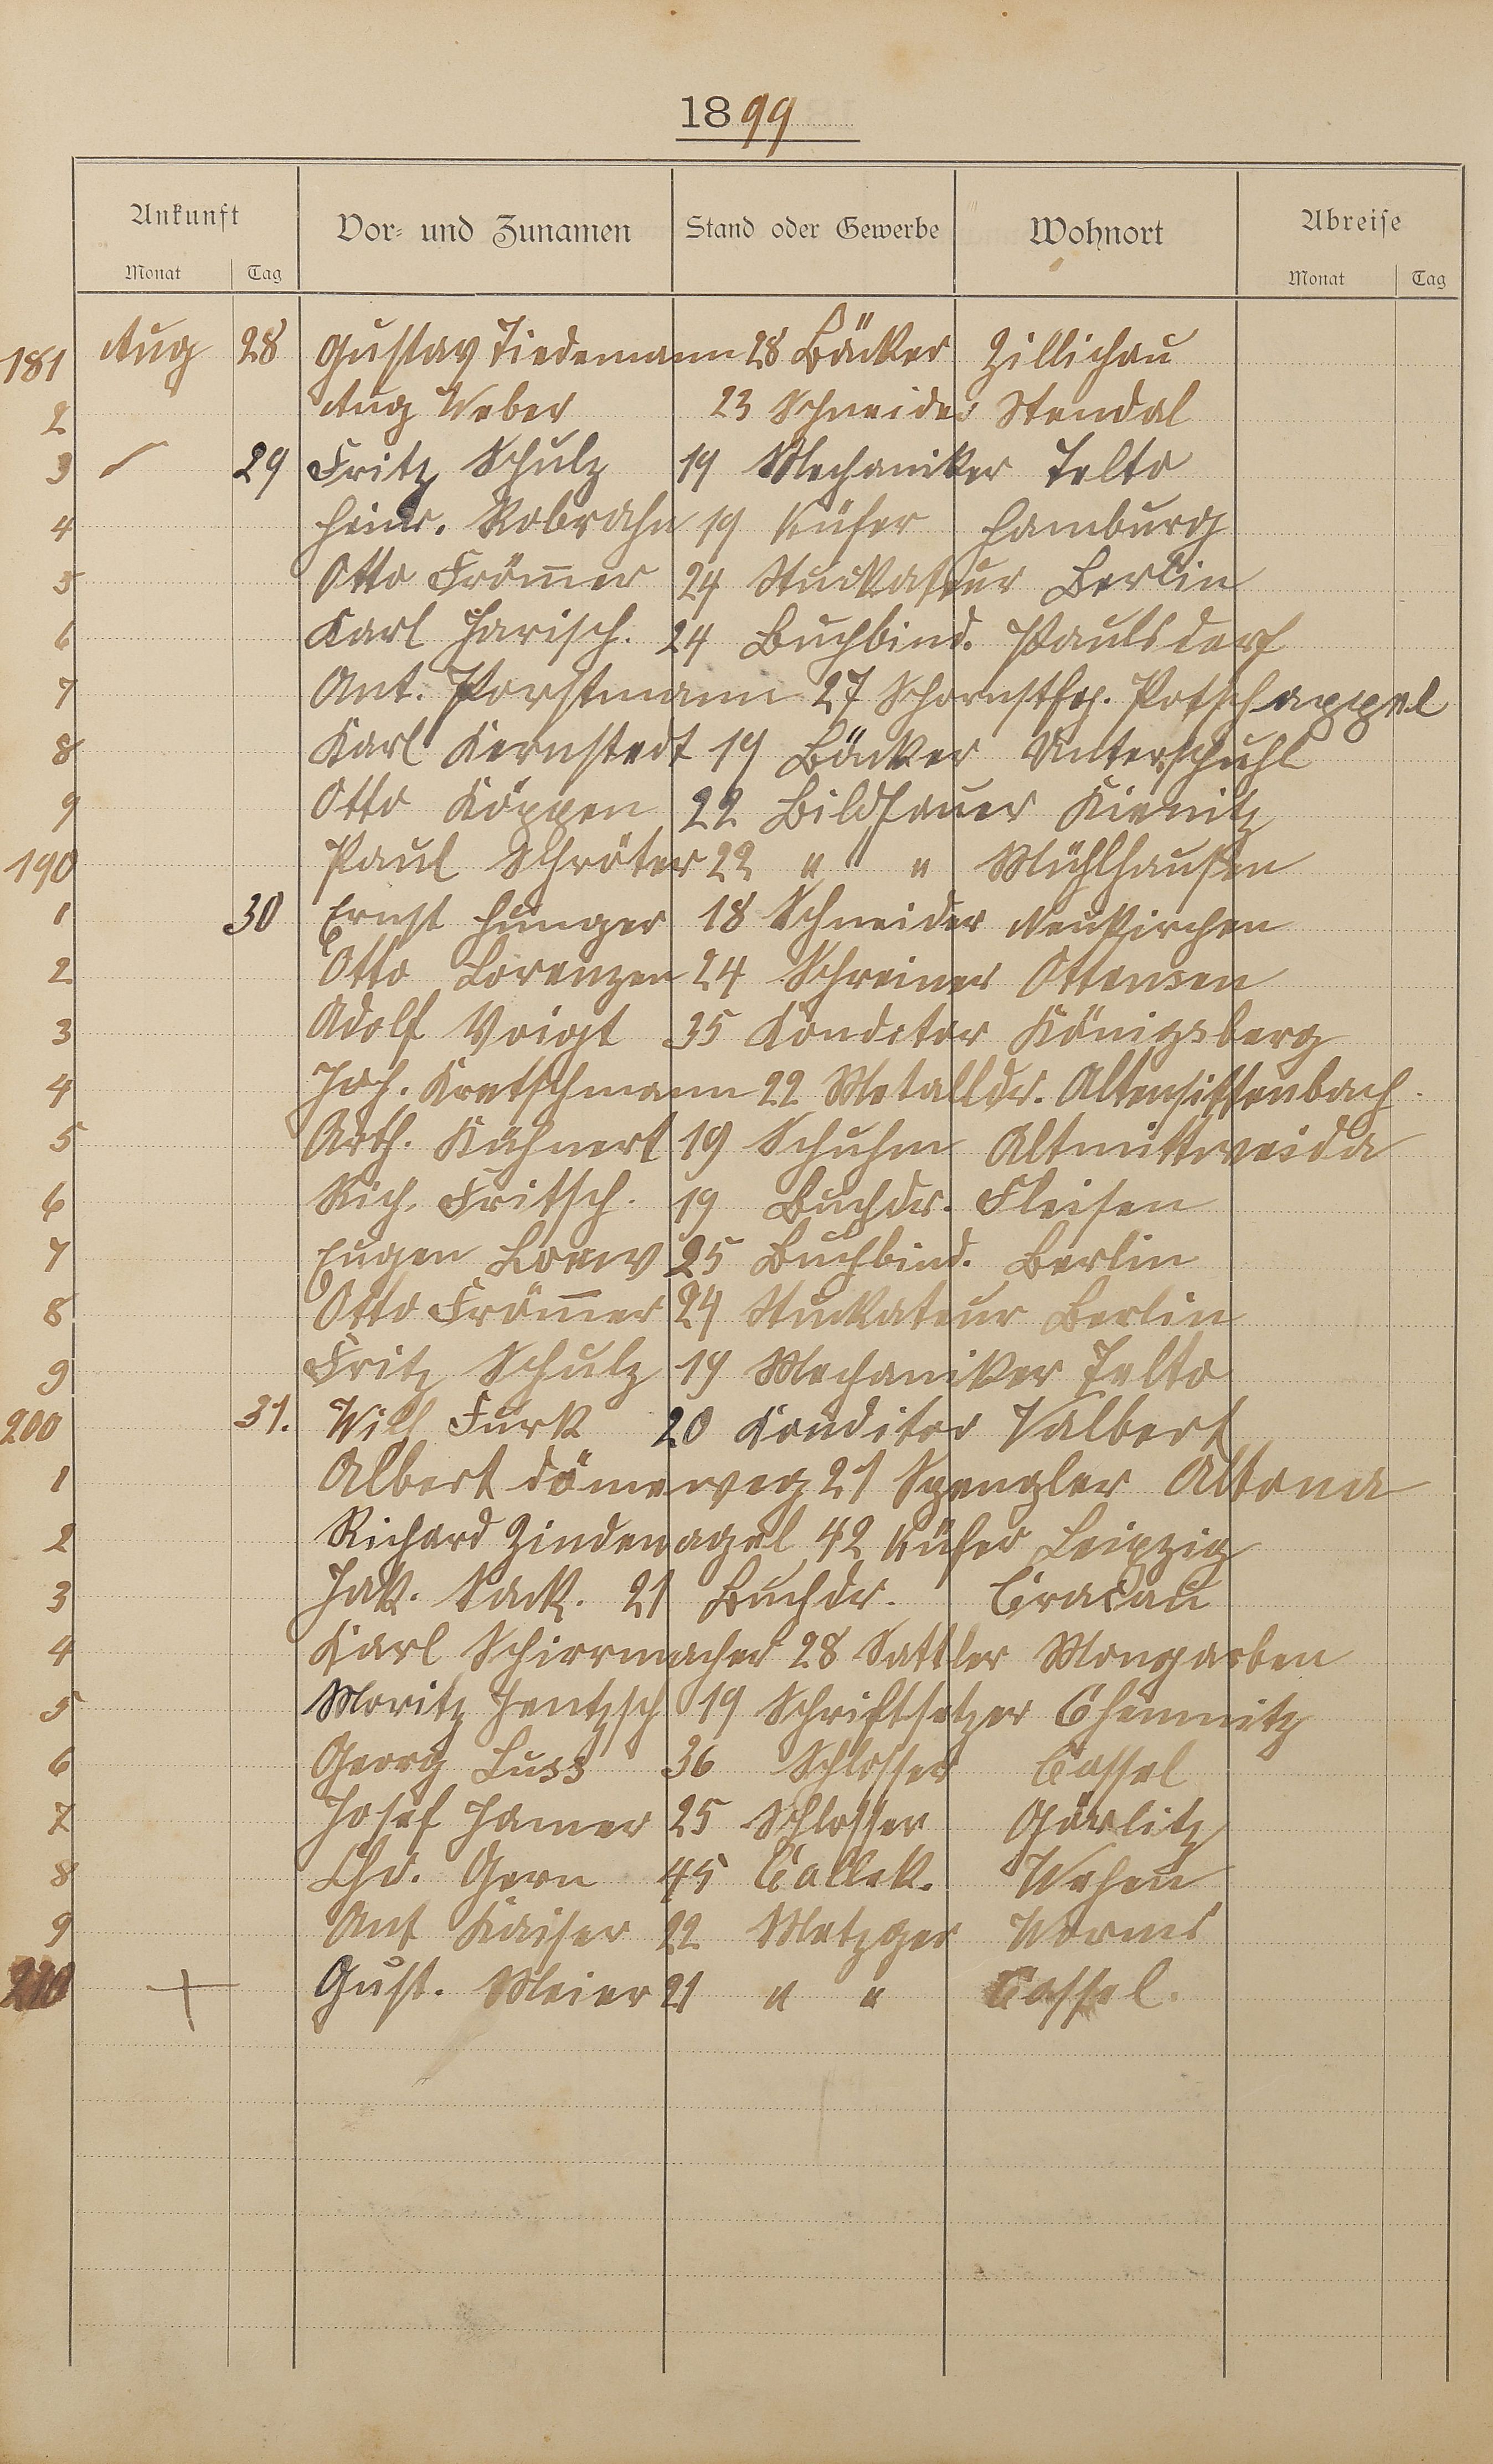 1899
Ankunft Vor= und Zunamen Stand oder Gewerbe Wohnort Abreise
Monat Tag Monat Tag
181 Aug 28 Gustav Tiedemann 28 Bäcker Zillichau
2 Aug Weber 23 Schneider Stendal
3 29 Fritz Schulz 19 Mechaniker Telto
4 Heinr. Robrahn 19 Küfer Hamburg
5 Otto Frömer 24 Stuckateur Berlin
6 Karl Harisch. 24 Buchbind. Paulsdorf
7 Ant. Porstmann 27 Schornstfg. Potschappel
8 Karl Kernstedt 19 Bäcker Unterschuhl
9 Otto Köppen 22 Bildhauer Kienitz
190 Paul Schröter 22 " " Mühlhausen
1 30 Ernst Hunger 18 Schneider Neukirchen
2 Otto Lorenzen 24 Schreiner Ottensen
3 Adolf Voigt 35 Konditor Königsberg
4 Joh. Kretschmann 22 Metalldr. Altensittenbach.
5 Arth. Kühnert 19 Schuhm Altmittweida
6 Rich. Fritsch. 19 Buchdr. Fleisen
7 Eugen Loew 25 Buchbind. Berlin
8 Otto Frömer 24 Stuckateur Berlin
9 Fritz Schulz 19 Mechaniker Telto
200 31. Will Furk 20 Konditor Valbert
1 Albert Dömeweg 21 Spengler Altona
2 Richard Zindenagel 42 Küfer Leipzig
3 Jak. Sack. 21 Buchdr. Cracau
4 Karl Schirrmacher 28 Sattler Mongarben
5 Moritz Jentzsch 19 Schriftsetzer Chemnitz
6 Georg Luss 36 Schlosser Cassel
7 Josef Hamer 25 Schlosser Görlitz
8 Chr. Gern 45 Collek. Wehen
9 Ant Kaiser 22 Metzger Worms
210 + Gust. Meier 21 " " Cassel.